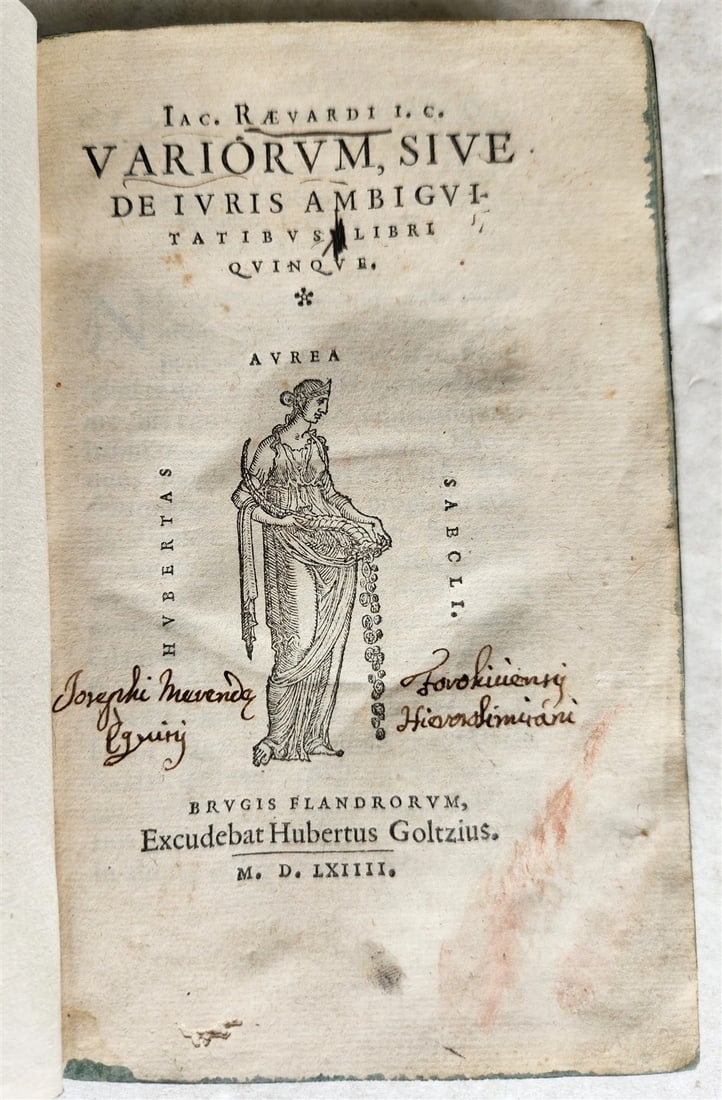 IAC. RÆVARDI I. C.
VARIORVM, SIVE
DE IVRIS AMBIGVI-
TATIBVS LIBRI
QVINQVE.
*
AVREA
HVBERTAS
SAECLI.
Iosephi Merendę
Eqvitis
Foroliviensis
Hierosolimitani
BRVGIS FLANDRORVM,
Excudebat Hubertus Goltzius.
M. D. LXIIII.